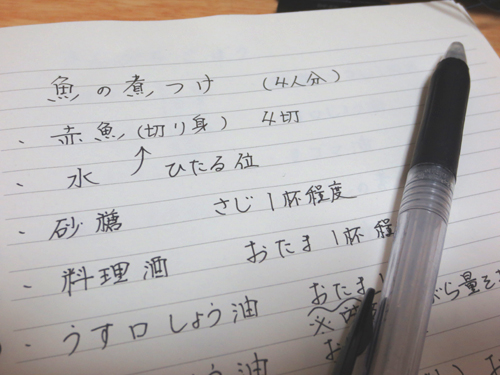 魚の煮つけ (4人分)
・赤魚(切り身) 4切
・水 ↑ ひたる位
・砂糖 さじ1杯程度
・料理酒 おたま1杯程
・うす口しょう油 おたま
※ がら量を
油 お